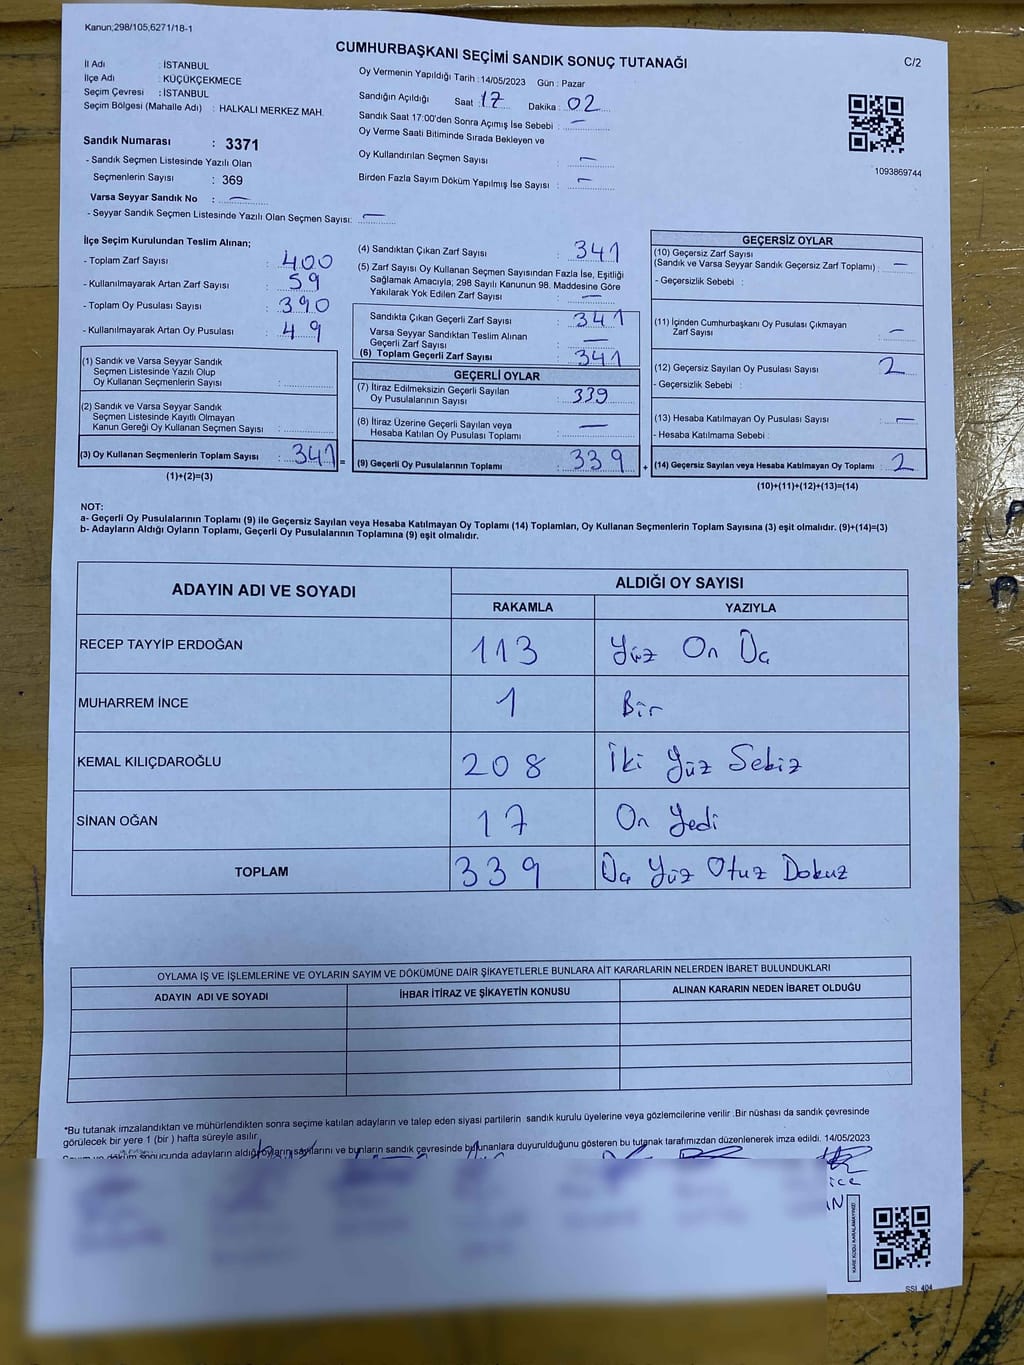 Kanun;298/105,6271/18-1
CUMHURBAŞKANI SEÇİMİ SANDIK SONUÇ TUTANAĞI
C/2
İl Adı : İSTANBUL
İlçe Adı : KÜÇÜKÇEKMECE
Seçim Çevresi : İSTANBUL
Seçim Bölgesi (Mahalle Adı) : HALKALI MERKEZ MAH.
Sandık Numarası : 3371
- Sandık Seçmen Listesinde Yazılı Olan
Seçmenlerin Sayısı : 369
Varsa Seyyar Sandık No : —
- Seyyar Sandık Seçmen Listesinde Yazılı Olan Seçmen Sayısı: —
Oy Vermenin Yapıldığı Tarih : 14/05/2023 Gün : Pazar
Sandığın Açıldığı Saat : 17 Dakika : 02
Sandık Saat 17:00'den Sonra Açımış İse Sebebi : —
Oy Verme Saati Bitiminde Sırada Bekleyen ve
Oy Kullandırılan Seçmen Sayısı : —
Birden Fazla Sayım Döküm Yapılmış İse Sayısı : —
1093869744
İlçe Seçim Kurulundan Teslim Alınan;
- Toplam Zarf Sayısı : 400
- Kullanılmayarak Artan Zarf Sayısı : 59
- Toplam Oy Pusulası Sayısı : 390
- Kullanılmayarak Artan Oy Pusulası : 49
(1) Sandık ve Varsa Seyyar Sandık
Seçmen Listesinde Yazılı Olup
Oy Kullanan Seçmenlerin Sayısı :
(2) Sandık ve Varsa Seyyar Sandık
Seçmen Listesinde Kayıtlı Olmayan
Kanun Gereği Oy Kullanan Seçmen Sayısı :
(3) Oy Kullanan Seçmenlerin Toplam Sayısı : 341 =
(1)+(2)=(3)
(4) Sandıktan Çıkan Zarf Sayısı : 341
(5) Zarf Sayısı Oy Kullanan Seçmen Sayısından Fazla İse, Eşitliği
Sağlamak Amacıyla; 298 Sayılı Kanunun 98. Maddesine Göre
Yakılarak Yok Edilen Zarf Sayısı : —
Sandıkta Çıkan Geçerli Zarf Sayısı : 341
Varsa Seyyar Sandıktan Teslim Alınan
Geçerli Zarf Sayısı : —
(6) Toplam Geçerli Zarf Sayısı : 341
GEÇERLİ OYLAR
(7) İtiraz Edilmeksizin Geçerli Sayılan
Oy Pusulalarının Sayısı : 339
(8) İtiraz Üzerine Geçerli Sayılan veya
Hesaba Katılan Oy Pusulası Toplamı : —
(9) Geçerli Oy Pusulalarının Toplamı : 339 +
GEÇERSİZ OYLAR
(10) Geçersiz Zarf Sayısı
(Sandık ve Varsa Seyyar Sandık Geçersiz Zarf Toplamı) : —
- Geçersizlik Sebebi :
(11) İçinden Cumhurbaşkanı Oy Pusulası Çıkmayan
Zarf Sayısı : —
(12) Geçersiz Sayılan Oy Pusulası Sayısı : 2
- Geçersizlik Sebebi :
(13) Hesaba Katılmayan Oy Pusulası Sayısı : —
- Hesaba Katılmama Sebebi :
(14) Geçersiz Sayılan veya Hesaba Katılmayan Oy Toplamı : 2
(10)+(11)+(12)+(13)=(14)
NOT:
a- Geçerli Oy Pusulalarının Toplamı (9) ile Geçersiz Sayılan veya Hesaba Katılmayan Oy Toplamı (14) Toplamları, Oy Kullanan Seçmenlerin Toplam Sayısına (3) eşit olmalıdır. (9)+(14)=(3)
b- Adayların Aldığı Oyların Toplamı, Geçerli Oy Pusulalarının Toplamına (9) eşit olmalıdır.
ADAYIN ADI VE SOYADI
ALDIĞI OY SAYISI
RAKAMLA YAZIYLA
RECEP TAYYİP ERDOĞAN 113 Yüz On Üç
MUHARREM İNCE 1 Bir
KEMAL KILIÇDAROĞLU 208 İki Yüz Sekiz
SİNAN OĞAN 17 On Yedi
TOPLAM 339 Üç Yüz Otuz Dokuz
OYLAMA İŞ VE İŞLEMLERİNE VE OYLARIN SAYIM VE DÖKÜMÜNE DAİR ŞİKAYETLERLE BUNLARA AİT KARARLARIN NELERDEN İBARET BULUNDUKLARI
ADAYIN ADI VE SOYADI İHBAR İTİRAZ VE ŞİKAYETİN KONUSU ALINAN KARARIN NEDEN İBARET OLDUĞU
*Bu tutanak imzalandıktan ve mühürlendikten sonra seçime katılan adayların ve talep eden siyasi partilerin sandık kurulu üyelerine veya gözlemcilerine verilir .Bir nüshası da sandık çevresinde
görülecek bir yere 1 (bir ) hafta süreyle asılır.
Sayım ve döküm sonucunda adayların aldığı oyların sayılarını ve bunların sandık çevresinde bulunanlara duyurulduğunu gösteren bu tutanak tarafımızdan düzenlenerek imza edildi. 14/05/2023
KARE KODU KARALAMAYINIZ!
SSI_404